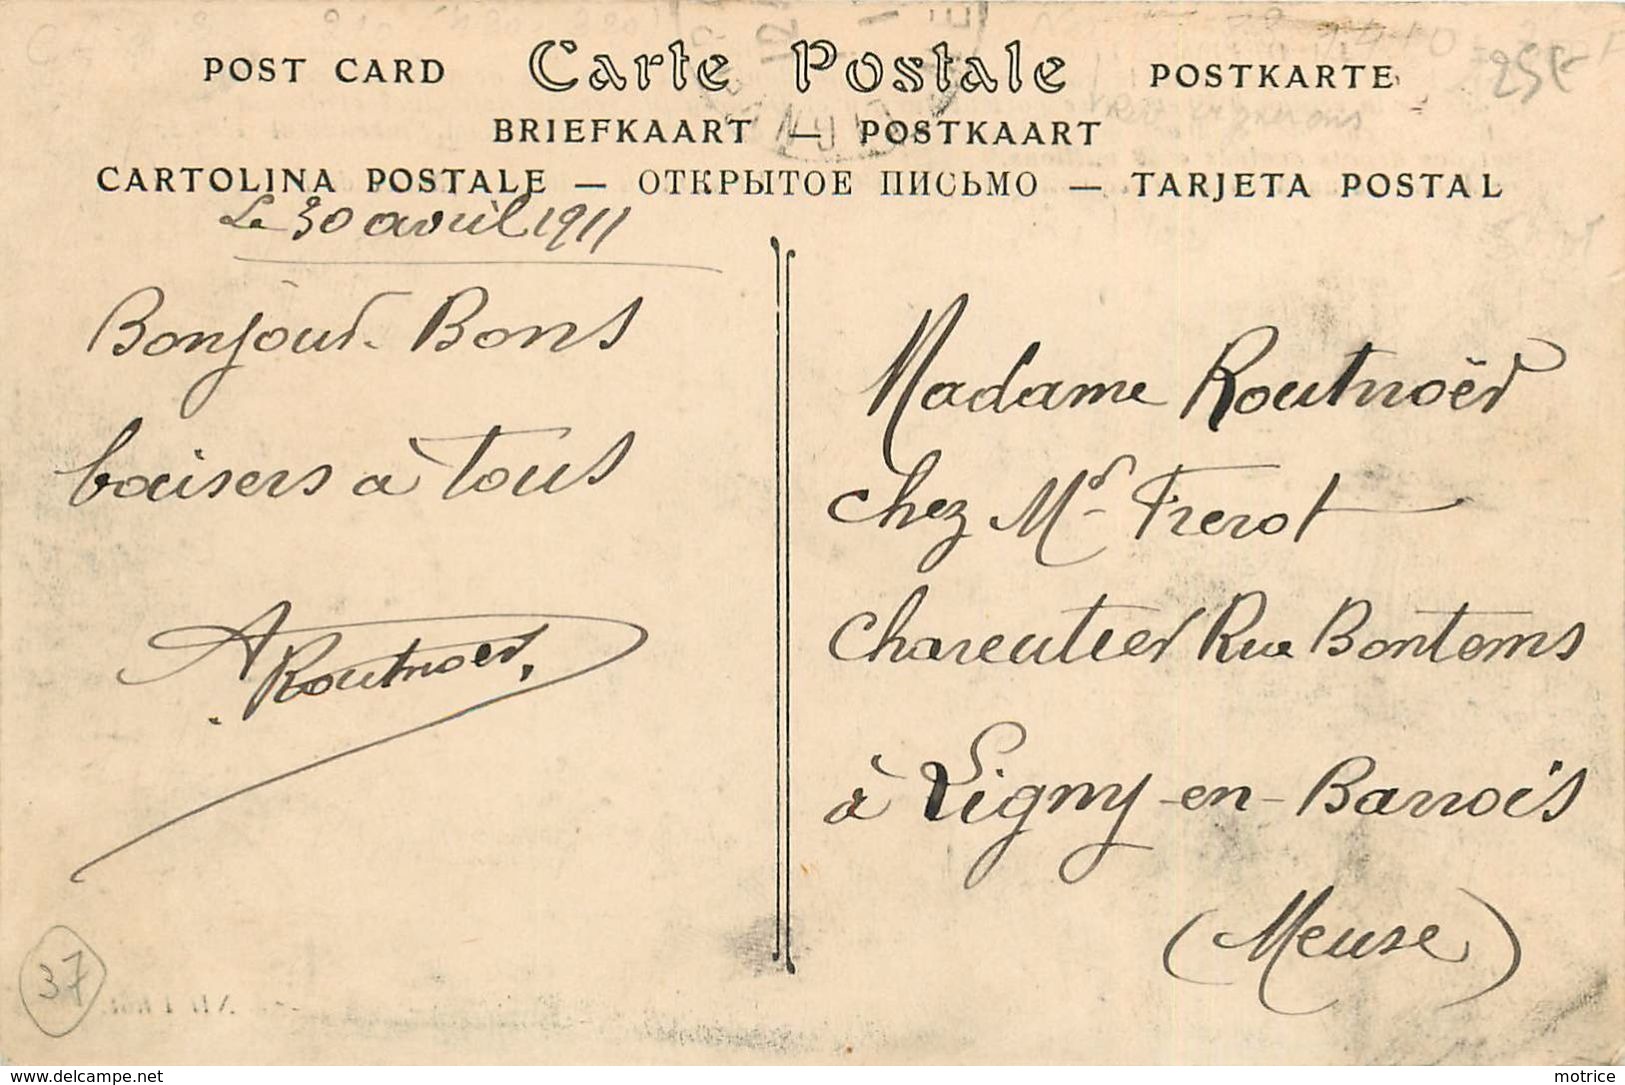 POST CARD Carte Postale POSTKARTE
25F
BRIEFKAART — POSTKAART
CARTOLINA POSTALE — ОТКРЫТОЕ ПИСЬМО — TARJETA POSTAL
Le 30 avril 1911
Bonjour. Bons
baisers à tous
A Routnoër,
Madame Routnoër
chez Mr Frerot
Charcutier Rue Bontems
à Ligny-en-Barrois
(Meuse)
37
www.delcampe.net
motrice